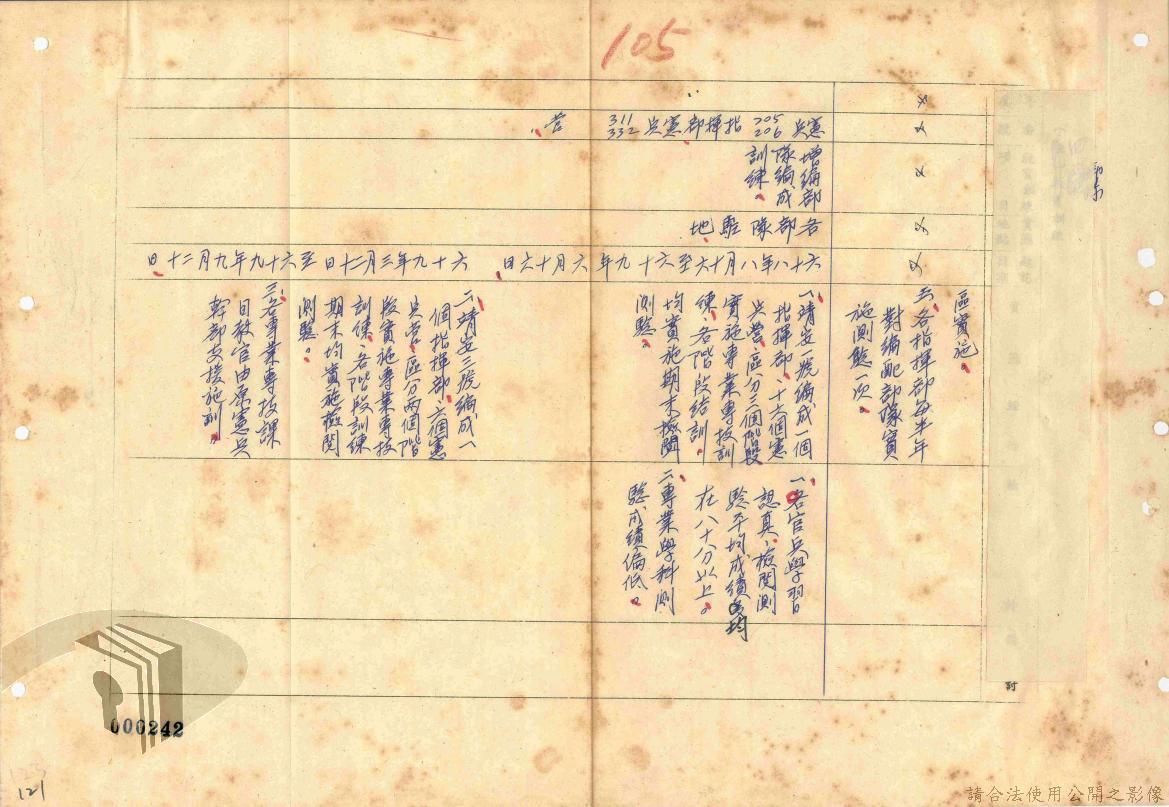 105
區實施。
五、各指揮部每半年
對編配部隊實
施測驗一次。
憲兵205 206指揮部憲兵311 332營、
增編部
隊編成
訓練。
各部隊駐地、
六十八年八月十六至六十九年六月十六日
六十九年三月二十日至六十九年九月二十日
一、靖安一號編成一個
指揮部、十六個憲
兵營、區分三個階段
實施專業專技訓
練、各階段結訓
均實施期末檢閱
測驗。
二、靖安三號編成一
個指揮部、六個憲
兵營、區分兩個階
段實施專業專技
訓練、各階段訓練
期末均實施檢閱
測驗。
三、各專業專技課
目教官由原憲兵
幹部支援施訓。
一、各官兵學習
認真、檢閱測
驗平均成績均
在八十分以上。
二、專業學科測
驗成績偏低。
討
000242
121
請合法使用公開之影像